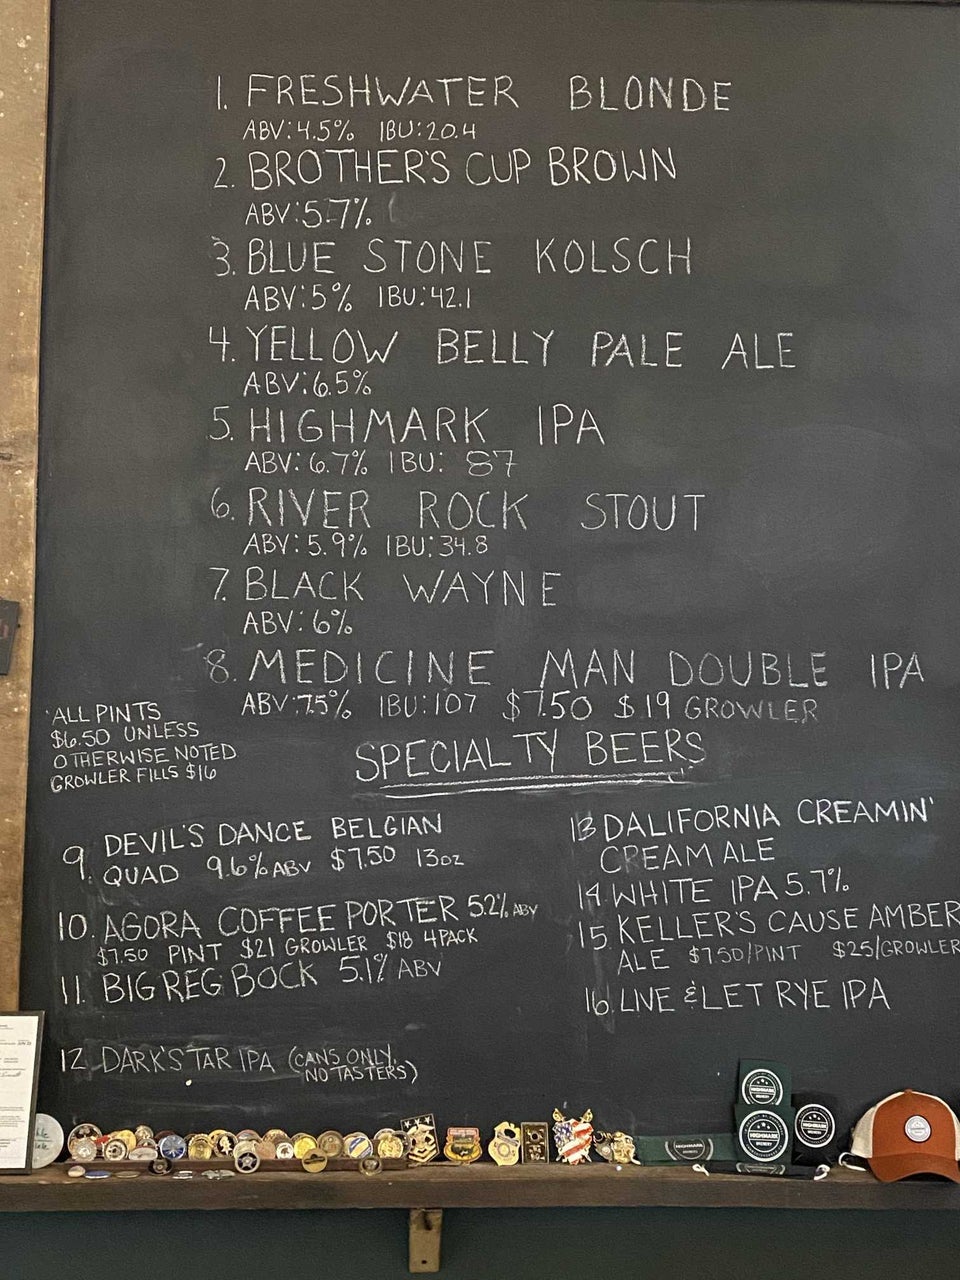 1. FRESHWATER BLONDE
ABV:4.5% IBU:20.4
2. BROTHER'S CUP BROWN
ABV:5.7%
3. BLUE STONE KOLSCH
ABV:5% IBU:42.1
4. YELLOW BELLY PALE ALE
ABV:6.5%
5. HIGHMARK IPA
ABV:6.7% IBU: 87
6. RIVER ROCK STOUT
ABV:5.9% IBU:34.8
7. BLACK WAYNE
ABV:6%
8. MEDICINE MAN DOUBLE IPA
ABV:7.5% IBU:107 $7.50 $19 GROWLER
ALL PINTS
$6.50 UNLESS
OTHERWISE NOTED
GROWLER FILLS $16
SPECIALTY BEERS
9. DEVIL'S DANCE BELGIAN
QUAD 9.6% ABV $7.50 13oz
10. AGORA COFFEE PORTER 5.2% ABV
$7.50 PINT $21 GROWLER $18 4PACK
11. BIG REG BOCK 5.1% ABV
12. DARKSTAR IPA (CANS ONLY,
NO TASTERS)
13 DALIFORNIA CREAMIN'
CREAM ALE
14. WHITE IPA 5.7%
15. KELLER'S CAUSE AMBER
ALE $7.50/PINT $25/GROWLER
16. LIVE & LET RYE IPA
HIGHMARK
HIGHMARK
HIGHMARK
HIGHMARK